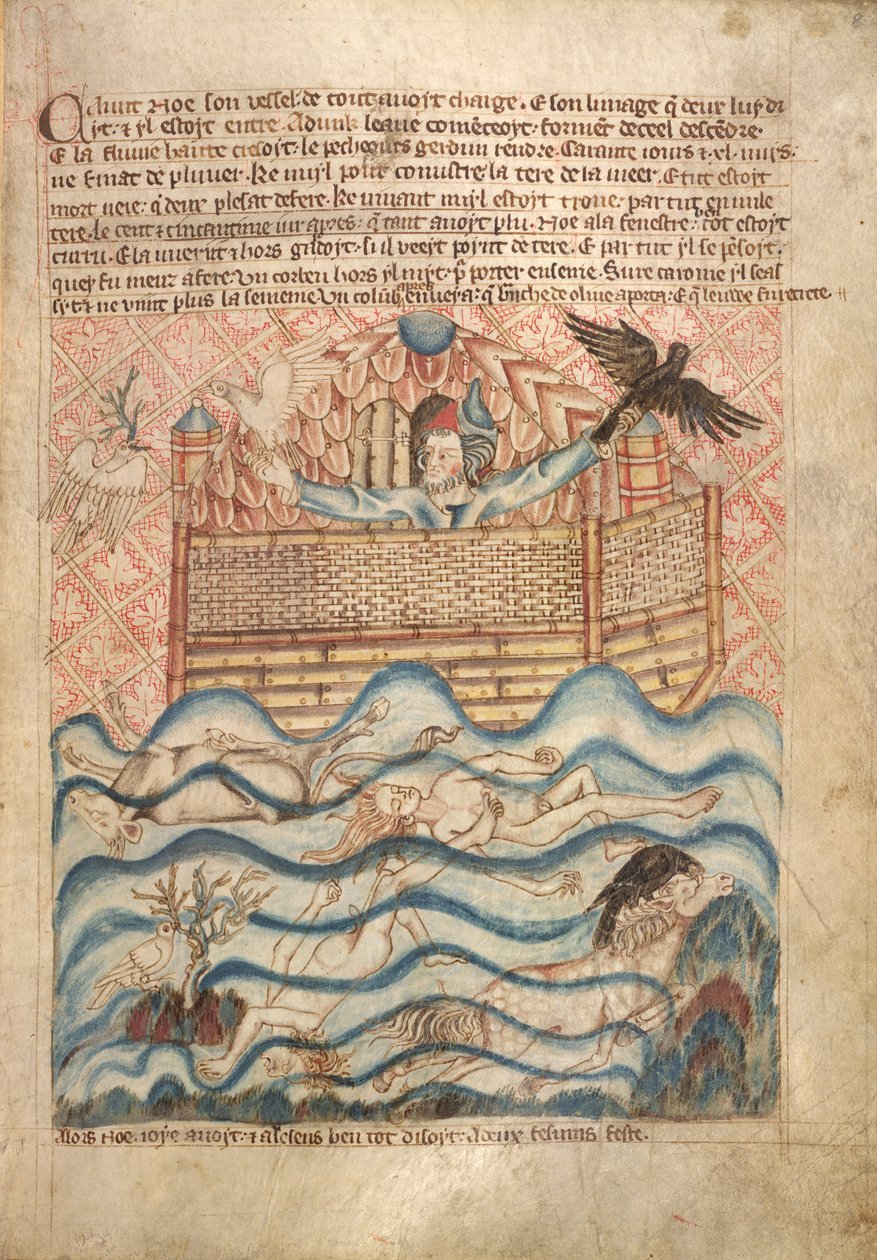 Qaunt Noe son vessel: de tout avoyt charge. E son linage q̄ deux luy di
yt: ⁊ yl estoyt entre. Adunk leaue comēceoyt: formēt de ceel descēdre.
E la fluvie haute cresoyt: le pechours gerdun rendre. Carante iours ⁊ .xl. nuys:
ne finat de pluver. Ke nuyl pout conustre: la tere de la meer. E tut estoyt
mort veie: q̄ deux plesat de fere. Ke vivant nuyl estoyt trove: par tut en nule
tere. le cent ⁊ cincantime iur apres: q̄ tant avoyt plu. Noe a la fenestre: tōt estoyt
curru. E la uverit ⁊ hors gardoyt: si il veeyt poynt de tere. E par tut yl se pēsoyt.
quey fu meuz a fere. Un corbeu hors yl myt: pr̄ porter enseme. Sure caronie yl seas
syt: ⁊ ne vint plus la semeine. Un colūb apres enveya: q̄ brāche de olive aporta: E q̄ leuwe fu retrete.
Alors Noe. ioye avoyt: ⁊ a ses ens ben tot disoyt: A deux fesums feste.
8